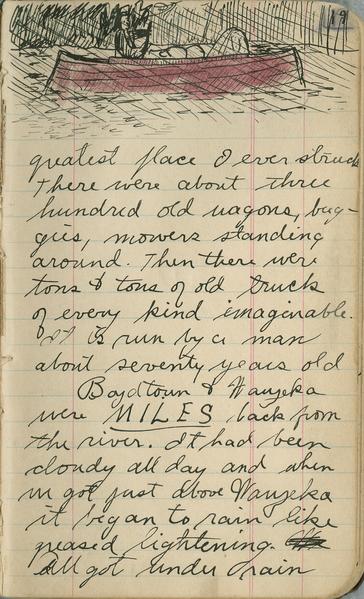 19
greatest place I ever struck
There were about three
hundred old wagons, bug-
gies, mowers standing
around. Then there were
tons & tons of old truck
of every kind imaginable.
It is run by a man
about seventy years old
Boydtown & Wauzeka
were MILES back from
the river. It had been
cloudy all day and when
we got just above Wauzeka
it began to rain like
greased lightening.
All got under rain